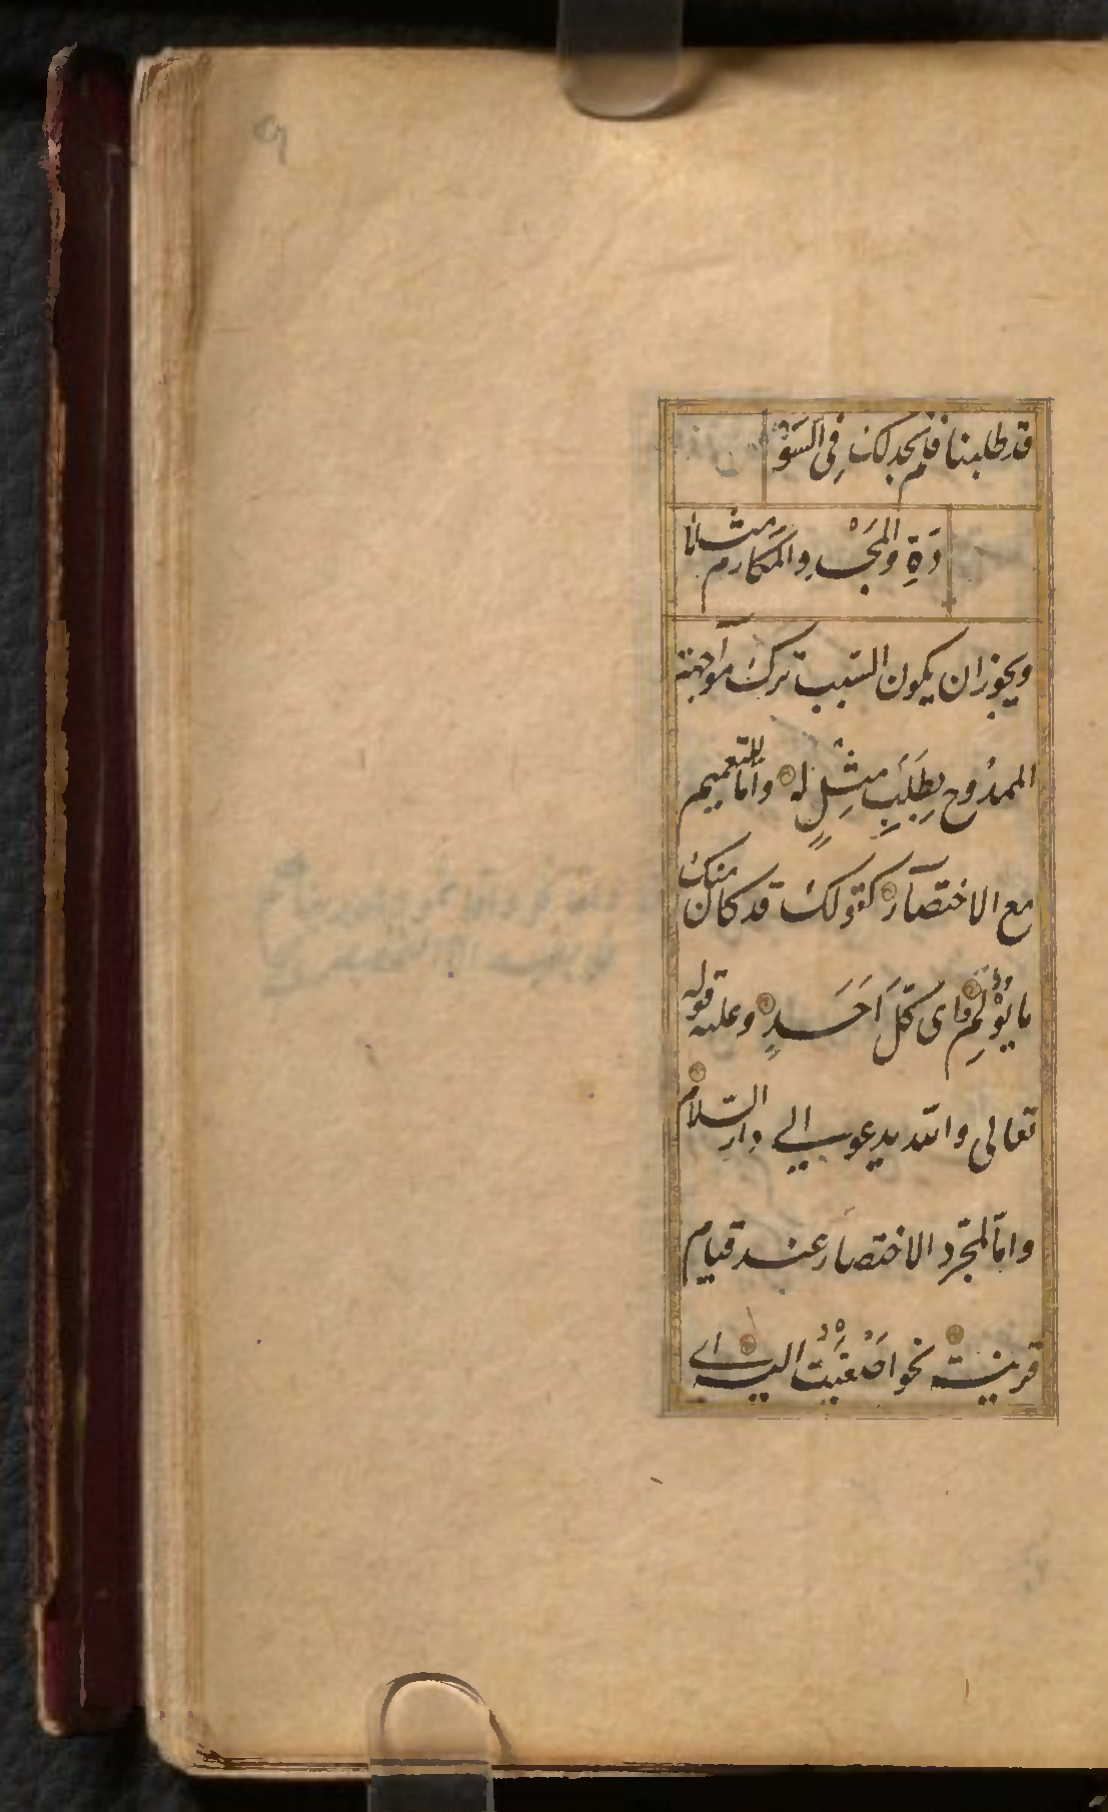 قد طلبنا فلم نجد لك فِى السّؤْ
دَدِ وَالمَجْدِ والمَكارم مثلا
ويجوز ان يكون السّبب ترك مواجهة
الممدُوح بِطَلَبِ مِثْلٍ له وامّا للتّعميم
مع الاختصار كقولك قد كان منك
ما يُؤْلِمُ اى كلّ اَحَدٍ وعليه قوله
تعالى والله يدعو الى دار السّلام
وامّا لمجّرد الاختصار عند قيام
قرينة نحو اصْغَيْتُ اليه اى